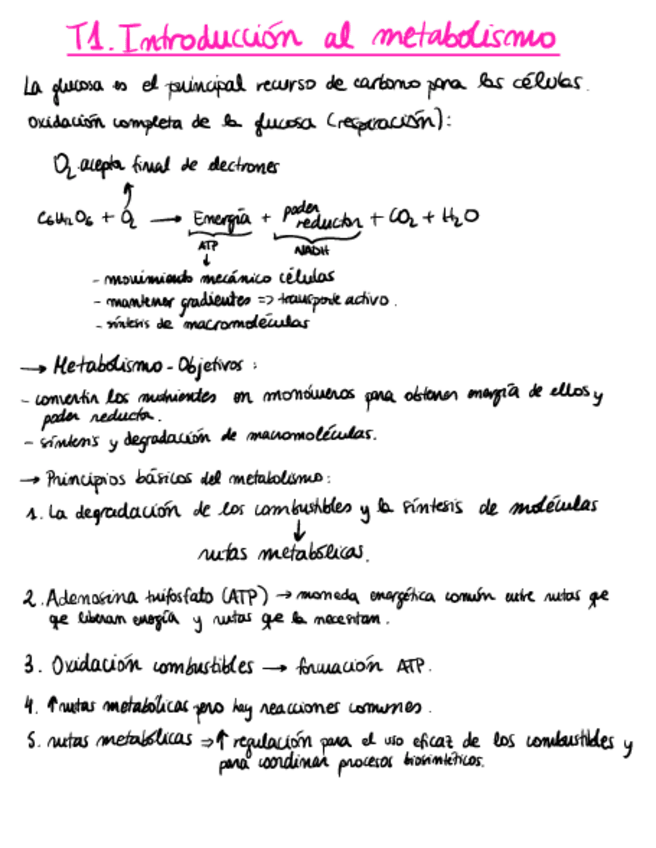 T1. Introducción al metabolismo
La glucosa es el principal recurso de carbono para las células.
Oxidación completa de la glucosa (respiración):
O₂ acepta final de electrones
C6H12O6 + O₂ → Energía + poder reductor + CO₂ + H₂O
ATP NADH
- movimiento mecánico células
- mantener gradientes => transporte activo.
- síntesis de macromoléculas
→ Metabolismo - Objetivos:
- convertir los nutrientes en monómeros para obtener energía de ellos y
poder reductor.
- síntesis y degradación de macromoléculas.
→ Principios básicos del metabolismo:
1. La degradación de los combustibles y la síntesis de moléculas
↓
rutas metabólicas.
2. Adenosina trifosfato (ATP) → moneda energética común entre rutas que
que liberan energía y rutas que la necesitan.
3. Oxidación combustibles → formación ATP.
4. ↑ rutas metabólicas pero hay reacciones comunes.
5. rutas metabólicas => ↑ regulación para el uso eficaz de los combustibles y
para coordinar procesos biosintéticos.